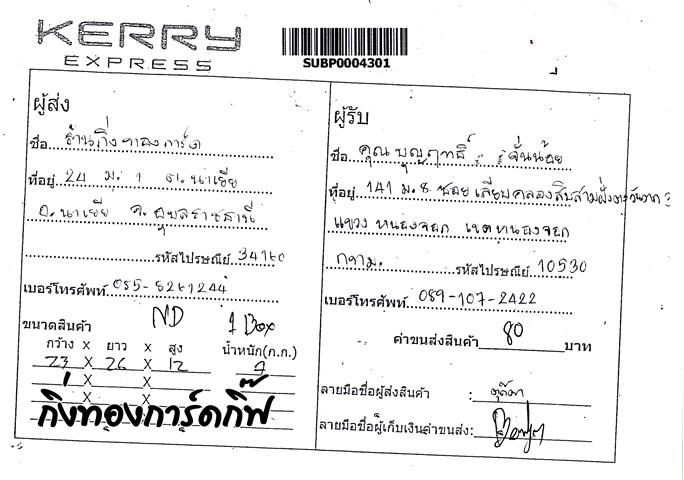 KERRY
EXPRESS
SUBP0004301
ผู้ส่ง
ชื่อ ร้านกิ่งทองการ์ด
ที่อยู่ 24 ม. 1 ต. นาเยีย
อ. นาเยีย จ. อุบลราชธานี
รหัสไปรษณีย์ 34160
เบอร์โทรศัพท์ 085-8261244
ขนาดสินค้า ND 1 Box
กว้าง X ยาว X สูง น้ำหนัก(ก.ก.)
23 X 26 X 12
X X
X X
กิ่งทองการ์ดกิ๊ฟ
ผู้รับ
ชื่อ คุณ บุญฤทธิ์ จั่นน้อย
ที่อยู่ 141 ม. 8 ซอย เลียบคลองสิบสามฝั่งตะวันตก
แขวง หนองจอก เขต หนองจอก
กทม. รหัสไปรษณีย์ 10530
เบอร์โทรศัพท์ 089-107-2422
ค่าขนส่งสินค้า 80 บาท
ลายมือชื่อผู้ส่งสินค้า :
ลายมือชื่อผู้เก็บเงินค่าขนส่ง: